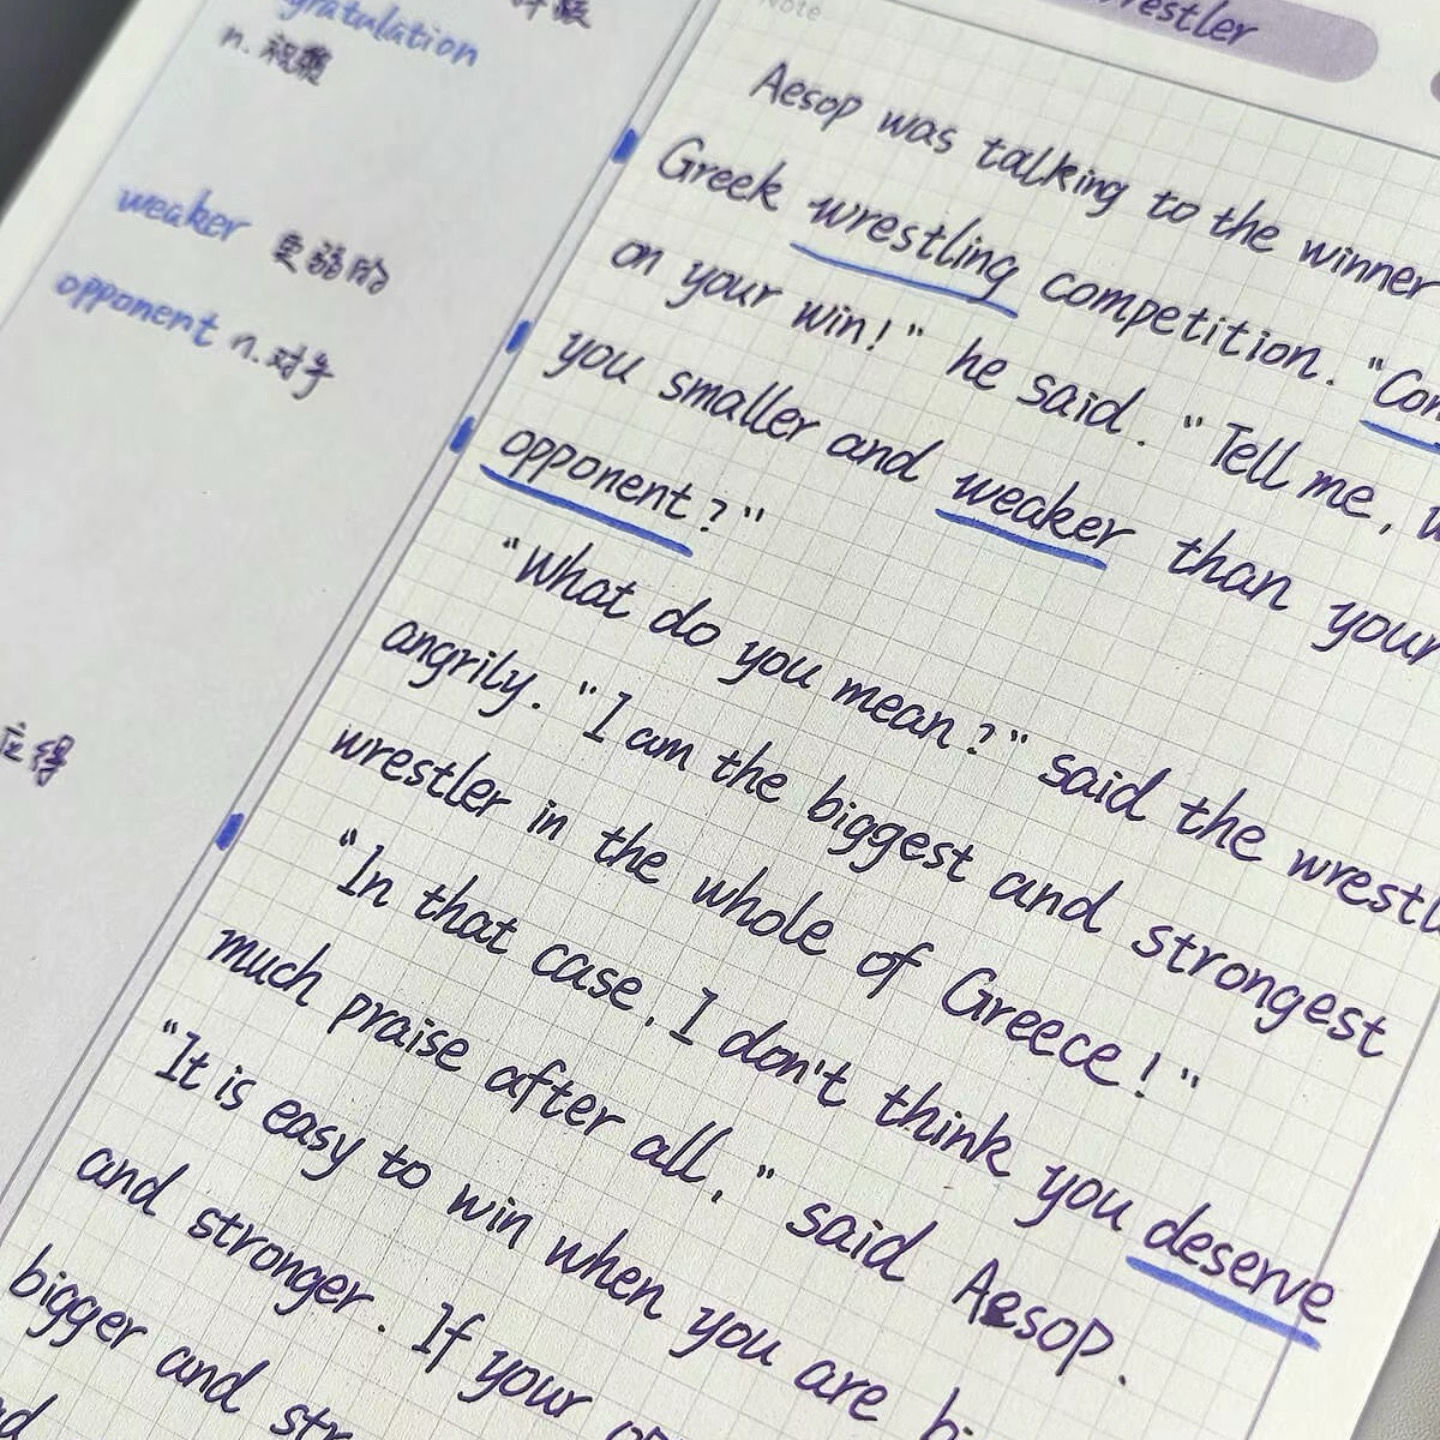 gratulation
n. 祝贺
weaker 更弱的
opponent n. 对手
应得
Note
wrestler
Aesop was talking to the winner
Greek wrestling competition. "Con
on your win!" he said. "Tell me, w
you smaller and weaker than your
opponent?"
"What do you mean?" said the wrestl
angrily. "I am the biggest and strongest
wrestler in the whole of Greece!"
"In that case, I don't think you deserve
much praise after all," said Aesop.
"It is easy to win when you are bi
and stronger. If your
bigger and str